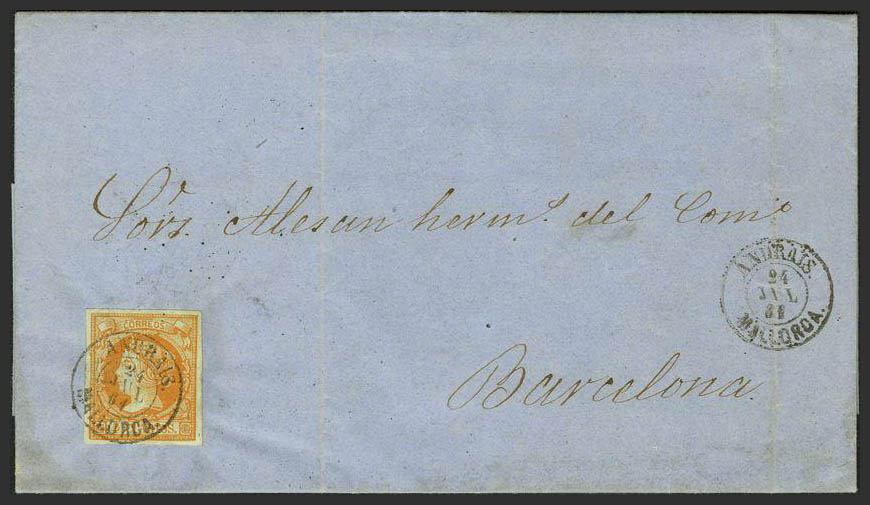 Sors. Alesan herms. del Como
Barcelona.
ANDRAIS.
24
JUL
61
MALLORCA.
CORREOS
ANDRAIS
24
JUL
61
MALLORCA.